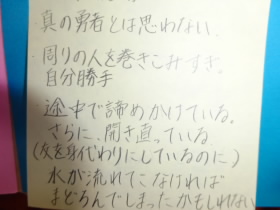 真の勇者とは思わない.
周りの人を巻きこみすぎ。
自分勝手
途中で諦めかけている。
さらに、開き直っている.
(友を身代わりにしているのに)
水が流れてこなければ
まどろんでしまったかもしれない